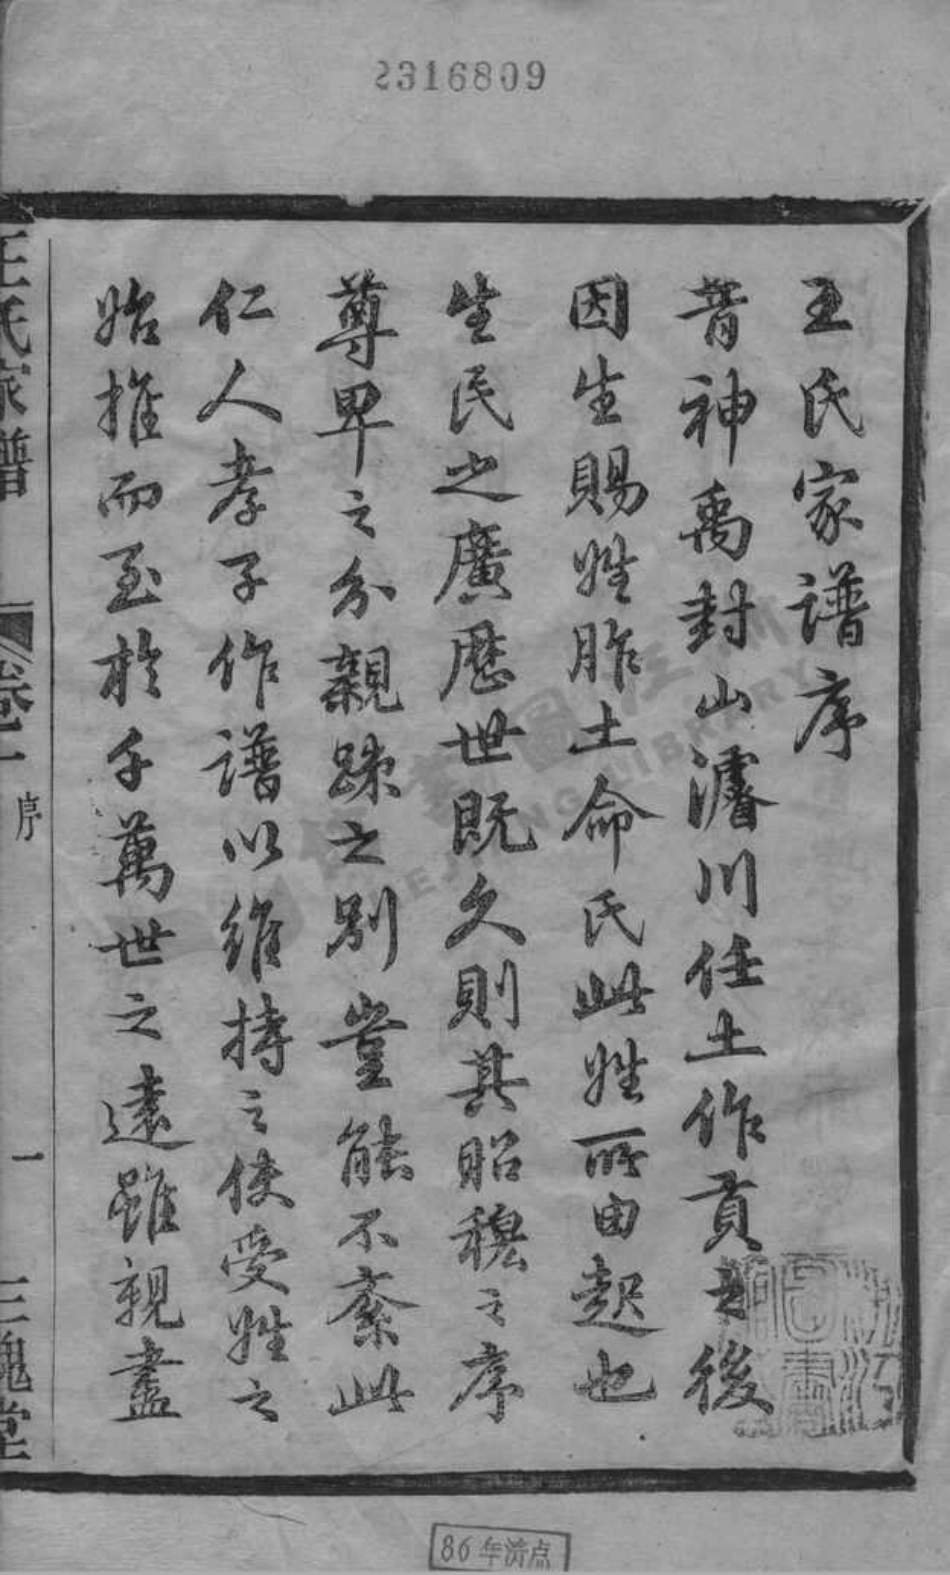 2316809
王氏家譜序
昔神禹封山濬川任土作貢之後
因生賜姓胙土命氏此姓所由起也
生民之廣歷世既久則其昭穆之序
尊卑之分親踈之別豈能不紊此
仁人孝子作譜以維持之使受姓之
始推而至於千萬世之遠雖親盡
王氏家譜
卷一
序
一
三槐堂
86年清点